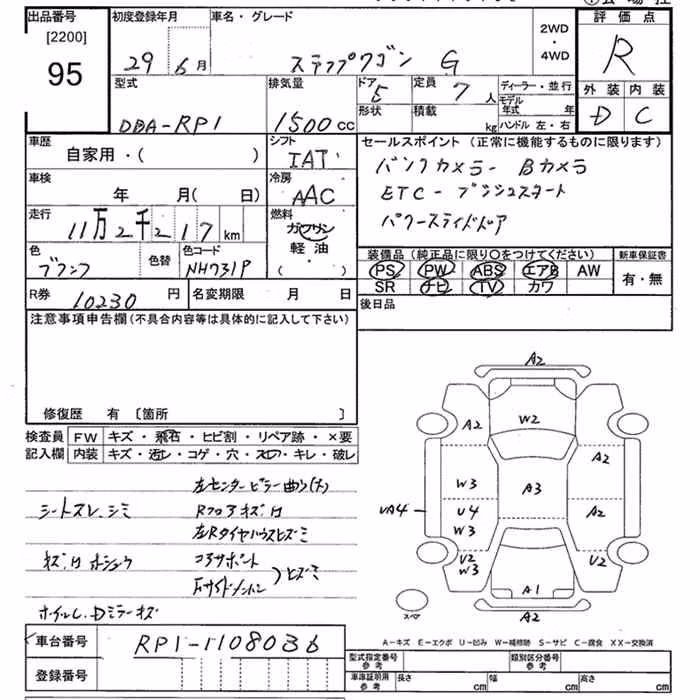 出品番号
[2200]
95
初度登録年月
29 6月
車名・グレード
ステップワゴン G
2WD
・
4WD
評価点
R
外装 内装
D C
型式
DBA-RP1
排気量
1500cc
ドア
5
形状
定員
7人
積載
kg
ディーラー・並行
モデル年式 年
ハンドル 左・右
車歴
自家用・( )
シフト
IAT
車検
年 月( 日)
冷房
AAC
走行
11万2千217km
燃料
ガソリン
軽・油
( )
色
ブラック
色替
色コード
NH731P
R券
10230円
名変期限 月 日
セールスポイント (正常に機能するものに限ります)
バックカメラ- Bカメラ
ETC - プッシュスタート
パワースライドドア
装備品(純正品に限り〇をつけてください)
PS PW ABS エアB AW
SR ナビ TV カワ
新車保証書
有・無
後日品
注意事項申告欄(不具合内容等は具体的に記入して下さい)
修復歴 有 〔箇所 〕
検査員記入欄
FW キズ・飛石・ヒビ割・リペア跡・×要
内装 キズ・汚レ・コゲ・穴・スレ・キレ・破レ
左センターピラー曲り(大)
シートスレ、シミ
Rフロアキズ、サ
左Rタイヤハウスヒズミ
コアサポート
Fサイドメンバー
)ヒズミ
ホイルL.Dミラーキズ
車台番号
RP1-1108036
登録番号
A2
A2
W2
A2
W3
A3
UA4
U4
W3
A2
U2
W3
U2
A1
A2
スペア
A-キズ E-エクボ U-凹み W-補修跡 S-サビ C-腐食 XX-交換済
型式指定番号
参考
類別区分番号
参考
車庫証明用
参考
長さ cm
幅 cm
高さ cm